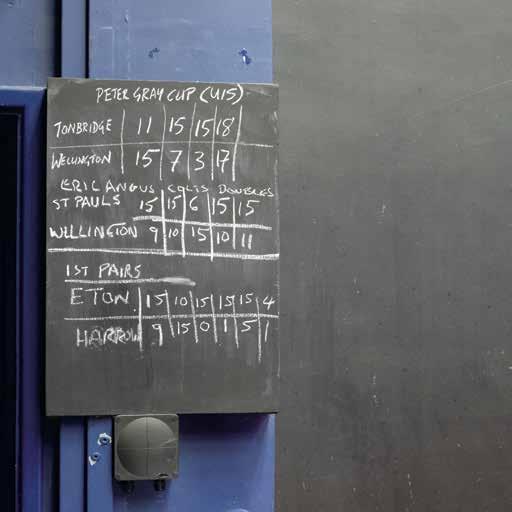 PETER GRAY CUP (U15)
TONBRIDGE 11 15 15 18
WELLINGTON 15 7 3 17
ERIC ANGUS COLTS DOUBLES
ST PAULS 15 15 6 15 15
WELLINGTON 9 10 15 10 11
1ST PAIRS
ETON 15 10 15 15 15 4
HARROW 9 15 0 1 5 1